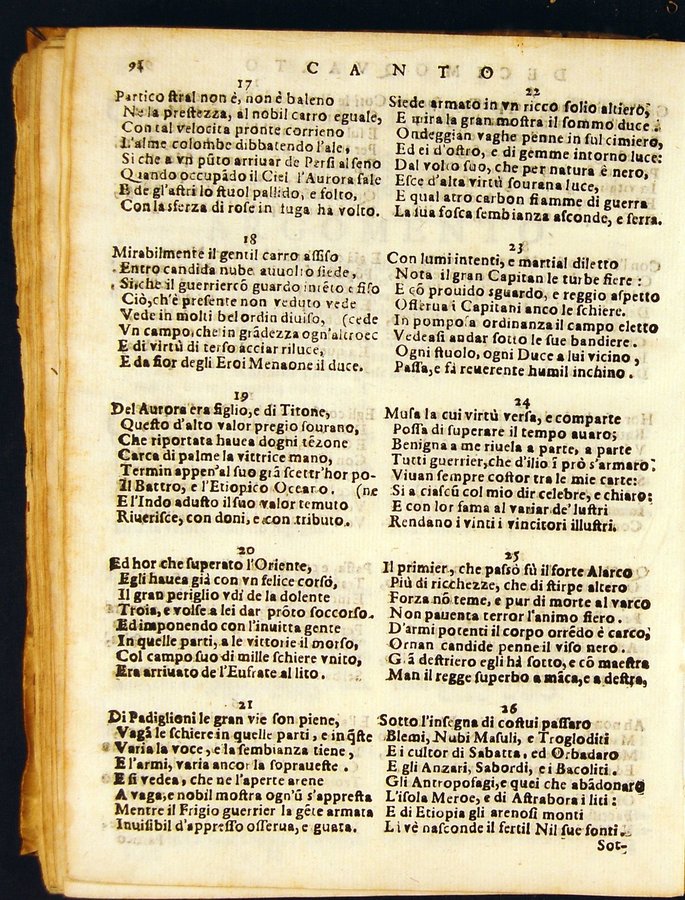 91
CANTO
17
Partico stral non è, non è baleno
Ne la prestezza, al nobil carro eguale,
Con tal velocità pronte corrieno
L'alme colombe dibbatendo l'ale,
Si che a vn pũto arriuar de Persi al seno
Quando occupādo il Ciel l'Aurora sale
E de gl'astri lo stuol pallido, e folto,
Con la sferza di rose in fuga ha volto.
18
Mirabilmente il gentil carro assiso
Entro candida nube auuolto siede,
Si, che il guerriercō guardo intēto e fiso
Ciò, ch'è presente non veduto vede
Vede in molti bel ordin diuiso, (cede
Vn campo, che in grādezza ogn'altroec
E di virtù di terso acciar riluce,
E da fior degli Eroi Menaone il duce.
19
Del Aurora era figlio, e di Titone,
Questo d'alto valor pregio sourano,
Che riportata hauea dogni tēzone
Carca di palme la vittrice mano,
Termin appen'al suo grā scettr'hor po-
Il Battro, e l'Etiopico Oceano. (ne
E l'Indo adusto il suo valor temuto
Riuerisce, con doni, e con tributo.
20
Ed hor che superato l'Oriente,
Egli hauea già con vn felice corso,
Il gran periglio vdì de la dolente
Troia, e volse a lei dar prōto soccorso.
Ed imponendo con l'inuitta gente
In quelle parti, a le vittorie il morso,
Col campo suo di mille schiere vnito,
Era arriuato de l'Eufrate al lito.
21
Di Padiglioni le gran vie son piene,
Vagā le schiere in quelle parti, e in q̃ste
Varia la voce, e la sembianza tiene,
E l'armi, varia ancor la sopraueste.
E si vedea, che ne l'aperte arene
A vaga, e nobil mostra ogn'ũ s'appresta
Mentre il Frigio guerrier la gēte armata
Inuisibil d'appresso osserua, e guata.
22
Siede armato in vn ricco solio altiero,
E mira la gran mostra il sommo duce.
Ondeggian vaghe penne in sul cimiero,
Ed ei d'ostro, e di gemme intorno luce:
Dal volto suo, che per natura è nero,
Esce d'alta virtù sourana luce,
E qual atro carbon fiamme di guerra
La sua fosca sembianza asconde, e serra.
23
Con lumi intenti, e martial diletto
Nota il gran Capitan le turbe fiere:
E cō prouido sguardo, e reggio aspetto
Osserua i Capitani anco le schiere.
In pomposa ordinanza il campo eletto
Vedeasi andar sotto le sue bandiere.
Ogni stuolo, ogni Duce a lui vicino,
Passa, e fà reuerente humil inchino.
24
Musa la cui virtù versa, e comparte
Possa di superare il tempo auaro;
Benigna a me riuela a parte, a parte
Tutti guerrier, che d'ilio ī prò s'armaro;
Viuan sempre costor tra le mie carte:
Si a ciascũ col mio dir celebre, e chiaro:
E con lor fama al variar de' lustri
Rendano i vinti i vincitori illustri.
25
Il primier, che passò fù il forte Alarco
Più di ricchezze, che di stirpe altero
Forza nō teme, e pur di morte al varco
Non pauenta terror l'animo fiero.
D'armi potenti il corpo orrēdo è carco,
Ornan candide penne il viso nero.
Grā destriero egli hà sotto, e cō maestra
Man il regge superbo a māca, e a destra,
26
Sotto l'insegna di costui passaro
Blemi, Nubi Masuli, e Trogloditi
E i cultor di Sabatta, ed Orbadaro
E gli Anzari, Sabordi, e i Bacoliti.
Gli Antropofagi, e quei che abādonaro
L'isola Meroe, e di Astrabora i liti:
E di Etiopia gli arenosi monti
Li vè nasconde il fertil Nil sue fonti.
Sot-